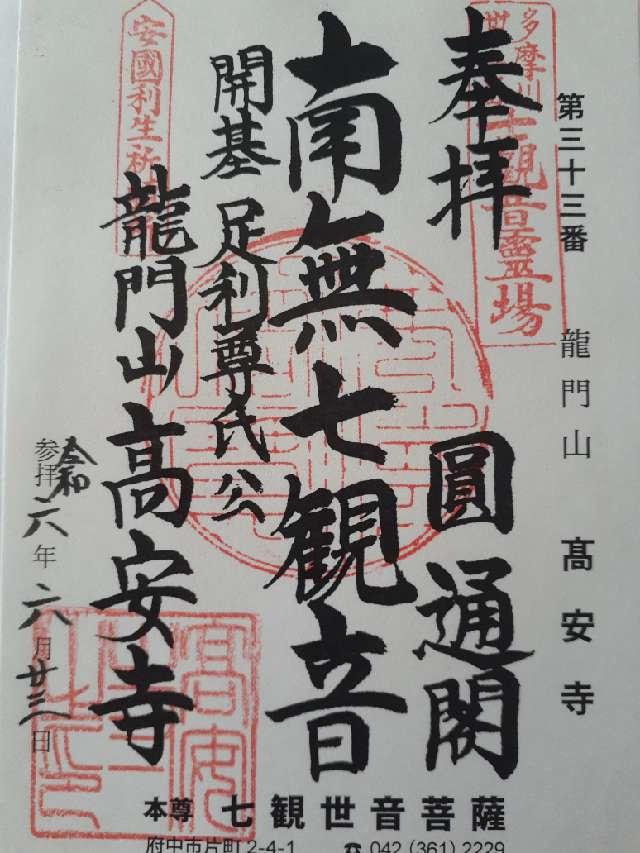 第三十三番 龍門山 髙安寺
多摩川
世三観音霊場
奉拝
圓通閣
南無七観音
開基 足利尊氏公
安國利生祈
龍門山高安寺
令和
参拝六年六月廿三日
高安
本尊 七観世音菩薩
府中市片町2-4-1 ☎ 042 (361) 2229